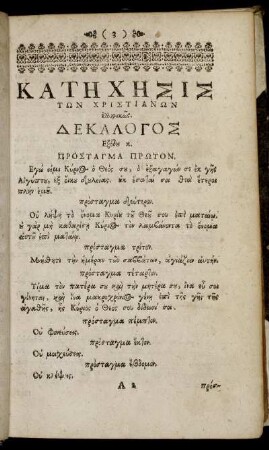 (3)
ΚΑΤΗΧΗΣΙΣ
ΤΩΝ ΧΡΙΣΤΙΑΝΩΝ
ΔΕΚΑΛΟΓΟΣ
Εξόδου κ.
ΠΡΟΣΤΑΓΜΑ ΠΡΩΤΟΝ.
Εγώ εἰμι Κύριος ὁ Θεός σου, ὁ ἐξαγαγών σε ἐκ γῆς
Αἰγύπτου, ἐξ οἴκου δουλείας. οὐκ ἔσονταί σοι θεοὶ ἕτεροι
πλὴν ἐμοῦ.
πρόσταγμα δεύτερον.
Οὐ λήψῃ τὸ ὄνομα Κυρίου τοῦ Θεοῦ σου ἐπὶ ματαίῳ.
οὐ γὰρ μὴ καθαρίσῃ Κύριος τὸν λαμβάνοντα τὸ ὄνομα
αὐτοῦ ἐπὶ ματαίῳ.
πρόσταγμα τρίτον.
Μνήσθητι τὴν ἡμέραν τῶν σαββάτων, ἁγιάζειν αὐτήν.
πρόσταγμα τέταρτον.
Τίμα τὸν πατέρα σου καὶ τὴν μητέρα σου, ἵνα εὖ σοι
γένηται, καὶ ἵνα μακροχρόνιος γένῃ ἐπὶ τῆς γῆς τῆς
ἀγαθῆς, ἧς Κύριος ὁ Θεός σου δίδωσί σοι.
πρόσταγμα πέμπτον.
Οὐ φονεύσεις.
πρόσταγμα ἕκτον.
Οὐ μοιχεύσεις.
πρόσταγμα ἕβδομον.
Οὐ κλέψεις.
A 2
πρόσ-